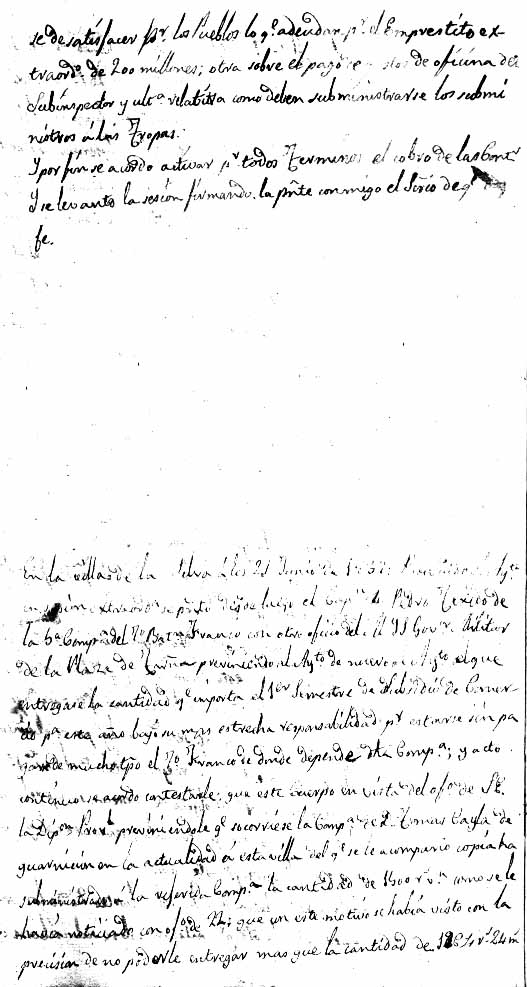 se de satisfacer pr. los Pueblos lo qe. adeudan pr. el Emprestito ex-
traordo. de 200 millones; otra sobre el pago de oficina del
Subinspector y ulta. relativa como deben subministrarse los submi
nistros á las Tropas.
Y por fin se acordo activar pr. todos Terminos el cobro de las Contr
Y se levantó la sesion firmando la pnte conmigo el Srio de q
fe.
En la villa de la Selva á los 21 Junio de
extraordo. se pntó luego el Capn. D. Pedro de
la 6a Compa. del Bat Franco con otro oficio del Il S Govr. Militar
de la Plaza de Tarrna previniendo al Ayto de nuevo que
entregase la cantidad qe. importa el 1er Semestre de subsidio de Comer-
cio pa. este año bajo su mas estrecha responsabilidad pr. estarse sin pa
mucho tpo el Franco de donde depende dha Compa.; y acto
continuo se acordo contestarle: que este cuerpo en vista del ofo. de SE.
la Dipn. Provl. previniendole qe. socorriese la Compa. de D. Tomas de
guarnicion en la actualidad á esta villa del qe. se le acompañó copia ha
subministrado á la referida Compa. la cantidad de 1500 rvn. como se le
habia noticiado con ofo. de 14; que con este motivo se habia visto con la
precision de no poderle entregar mas que la cantidad de rs. 24 m